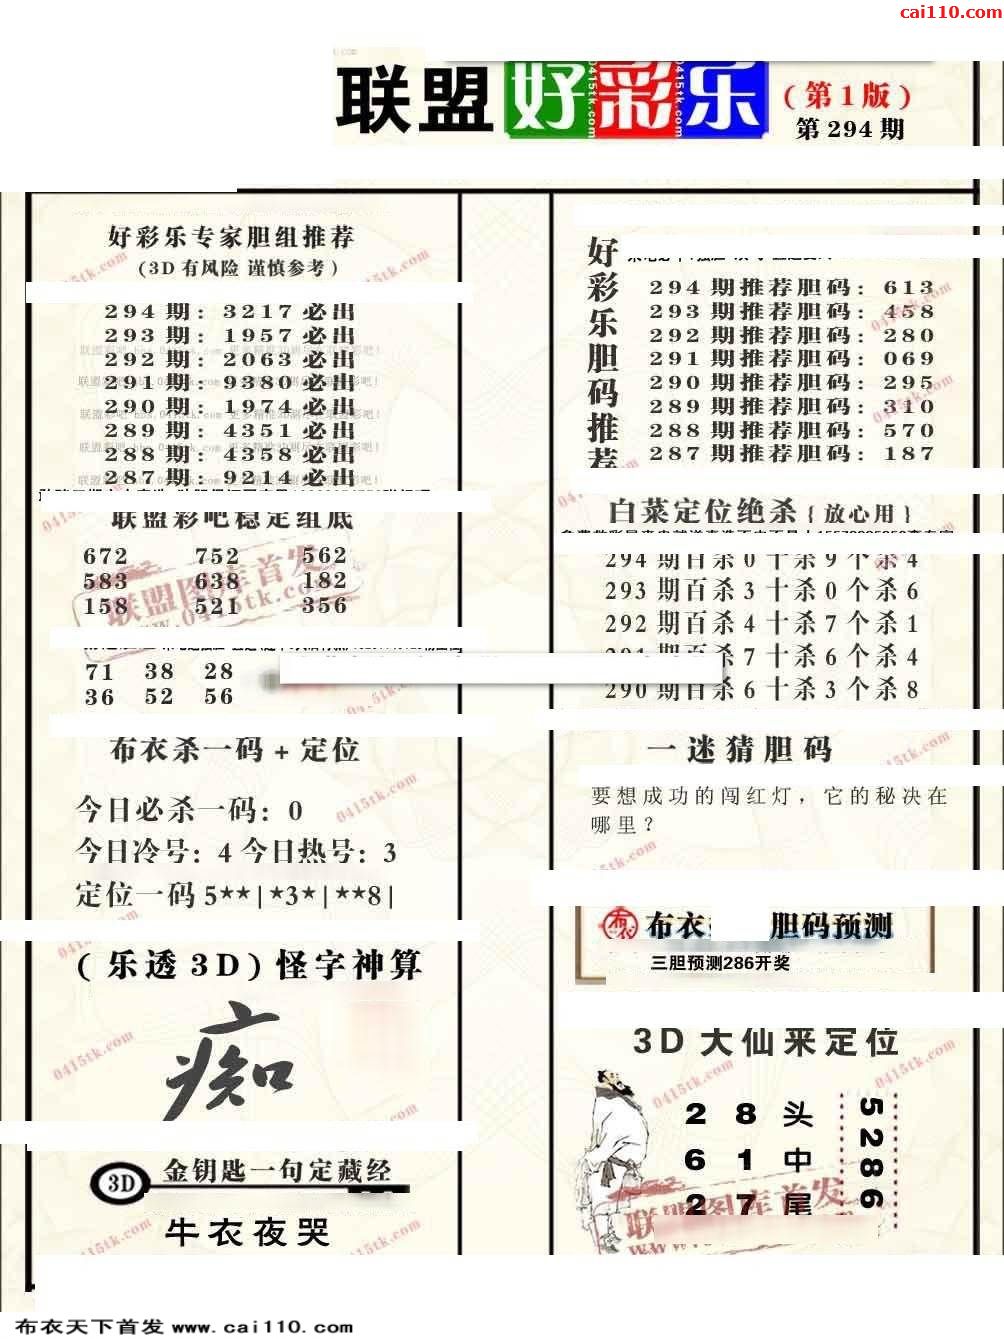 cai110.com
联盟好彩乐
(第1版)
第294期
好彩乐专家胆组推荐
(3D有风险 谨慎参考)
294期: 3217必出
293期: 1957必出
292期: 2063必出
291期: 9380必出
290期: 1974必出
289期: 4351必出
288期: 4358必出
287期: 9214必出
联盟彩吧稳定组底
672 752 562
583 638 182
158 521 356
71 38 28
36 52 56
布衣杀一码+定位
今日必杀一码: 0
今日冷号: 4 今日热号: 3
定位一码 5**|*3*|**8|
(乐透3D)怪字神算
痴
3D 金钥匙一句定藏经
牛衣夜哭
好彩乐胆码推荐
294期推荐胆码: 613
293期推荐胆码: 458
292期推荐胆码: 280
291期推荐胆码: 069
290期推荐胆码: 295
289期推荐胆码: 310
288期推荐胆码: 570
287期推荐胆码: 187
白菜定位绝杀{放心用}
294期百杀0十杀9个杀4
293期百杀3十杀0个杀6
292期百杀4十杀7个杀1
291期百杀7十杀6个杀4
290期百杀6十杀3个杀8
一迷猜胆码
要想成功的闯红灯，它的秘决在
哪里？
布衣 胆码预测
三胆预测286开奖
3D大仙来定位
2 8 头
6 1 中
2 7 尾
5286
联盟图库首发
www.0415tk.com
布衣天下首发 www.cai110.com